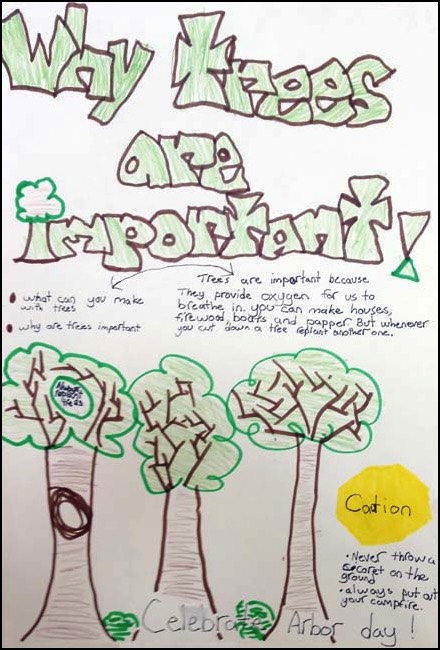 Why trees
are
important!
• what can you make
with trees
• why are trees important
Trees are important because
They provide oxygen for us to
breathe in. you can make houses,
firewood, boats and papper. But whenever
you cut down a tree replant another one.
replant
trees
Caution
• Never throw a
on the
ground
• always put out
your campfire.
Celebrate Arbor day!